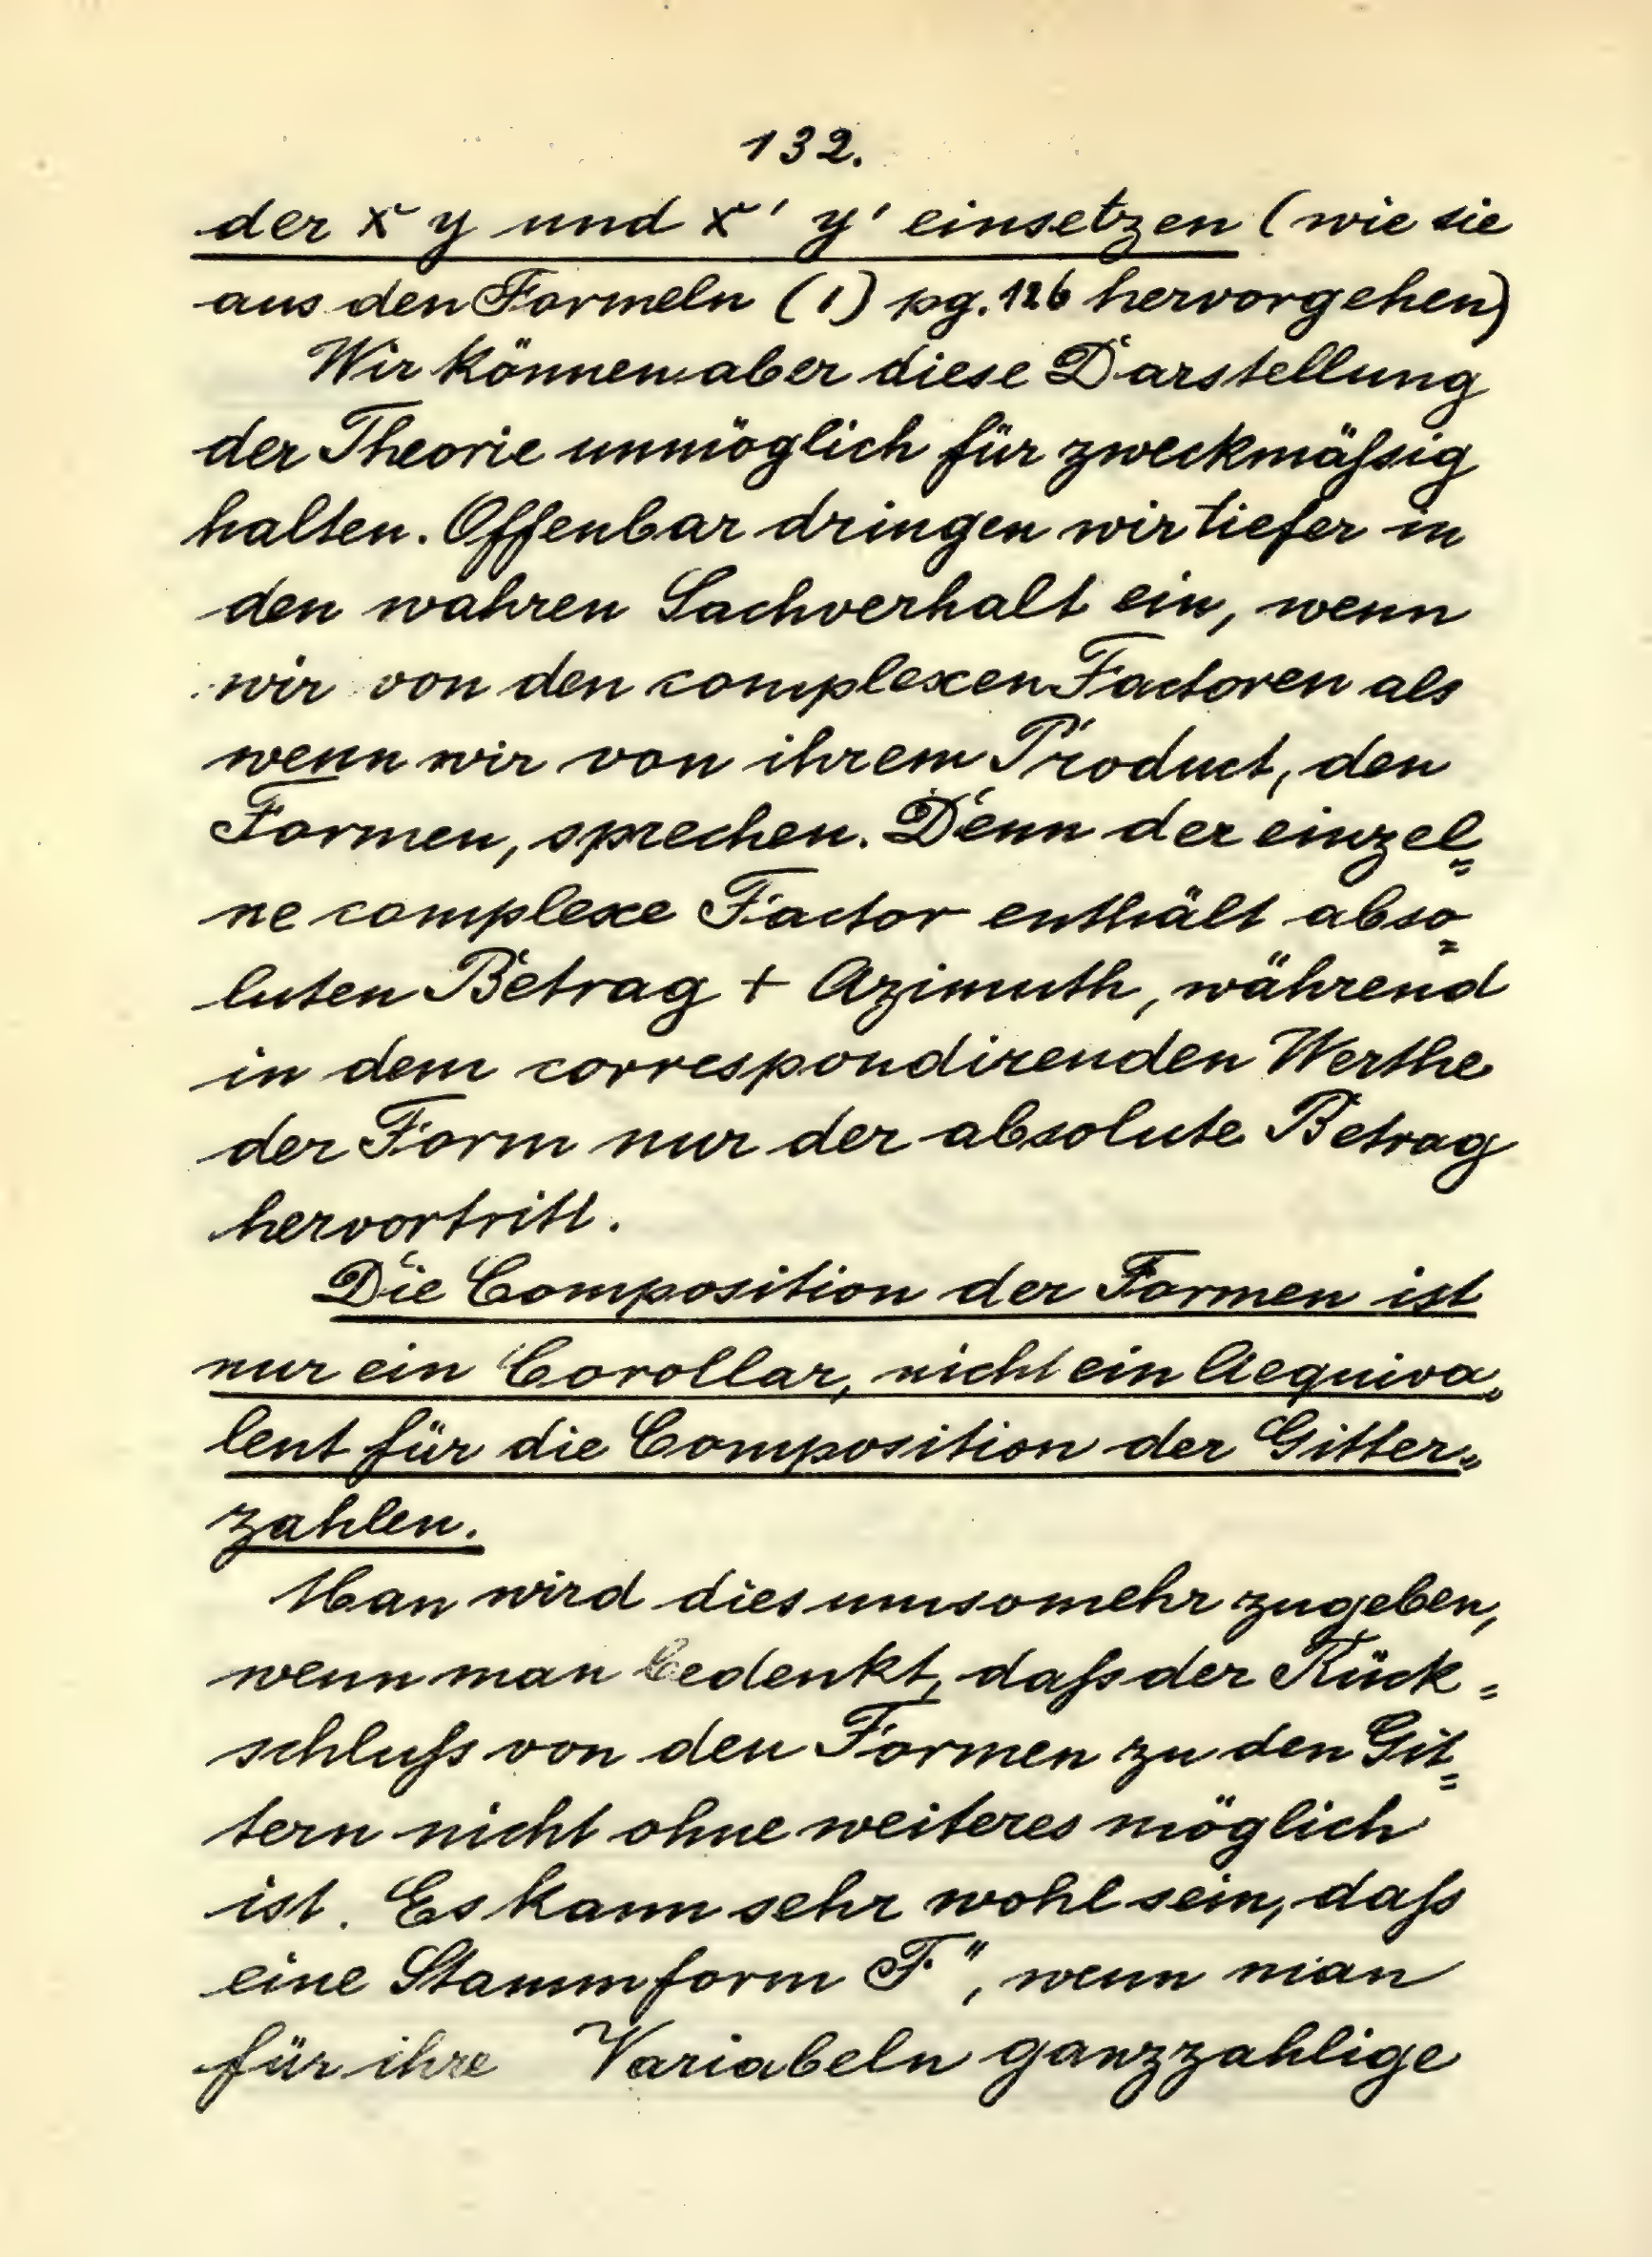 132.
der x y und x' y' einsetzen (wie sie
aus den Formeln (1) pg. 126 hervorgehen)
Wir können aber diese Darstellung
der Theorie unmöglich für zweckmäßsig
halten. Offenbar dringen wir tiefer in
den wahren Sachverhalt ein, wenn
wir von den complexen Factoren als
wenn wir von ihrem Product, den
Formen, sprechen. Denn der einzel=
ne complexe Factor enthält abso=
luten Betrag + Azimuth, während
in dem correspondirenden Werthe
der Form nur der absolute Betrag
hervortritt.
Die Composition der Formen ist
nur ein Corollar, nicht ein Aequiva=
lent für die Composition der Gitter=
zahlen.
Man wird dies umsomehr zugeben,
wenn man bedenkt, daß der Rück=
schluß von den Formen zu den Git=
tern nicht ohne weiteres möglich
ist. Es kann sehr wohl sein, daß
eine Stammform F", wenn man
für ihre Variabeln ganzzahlige